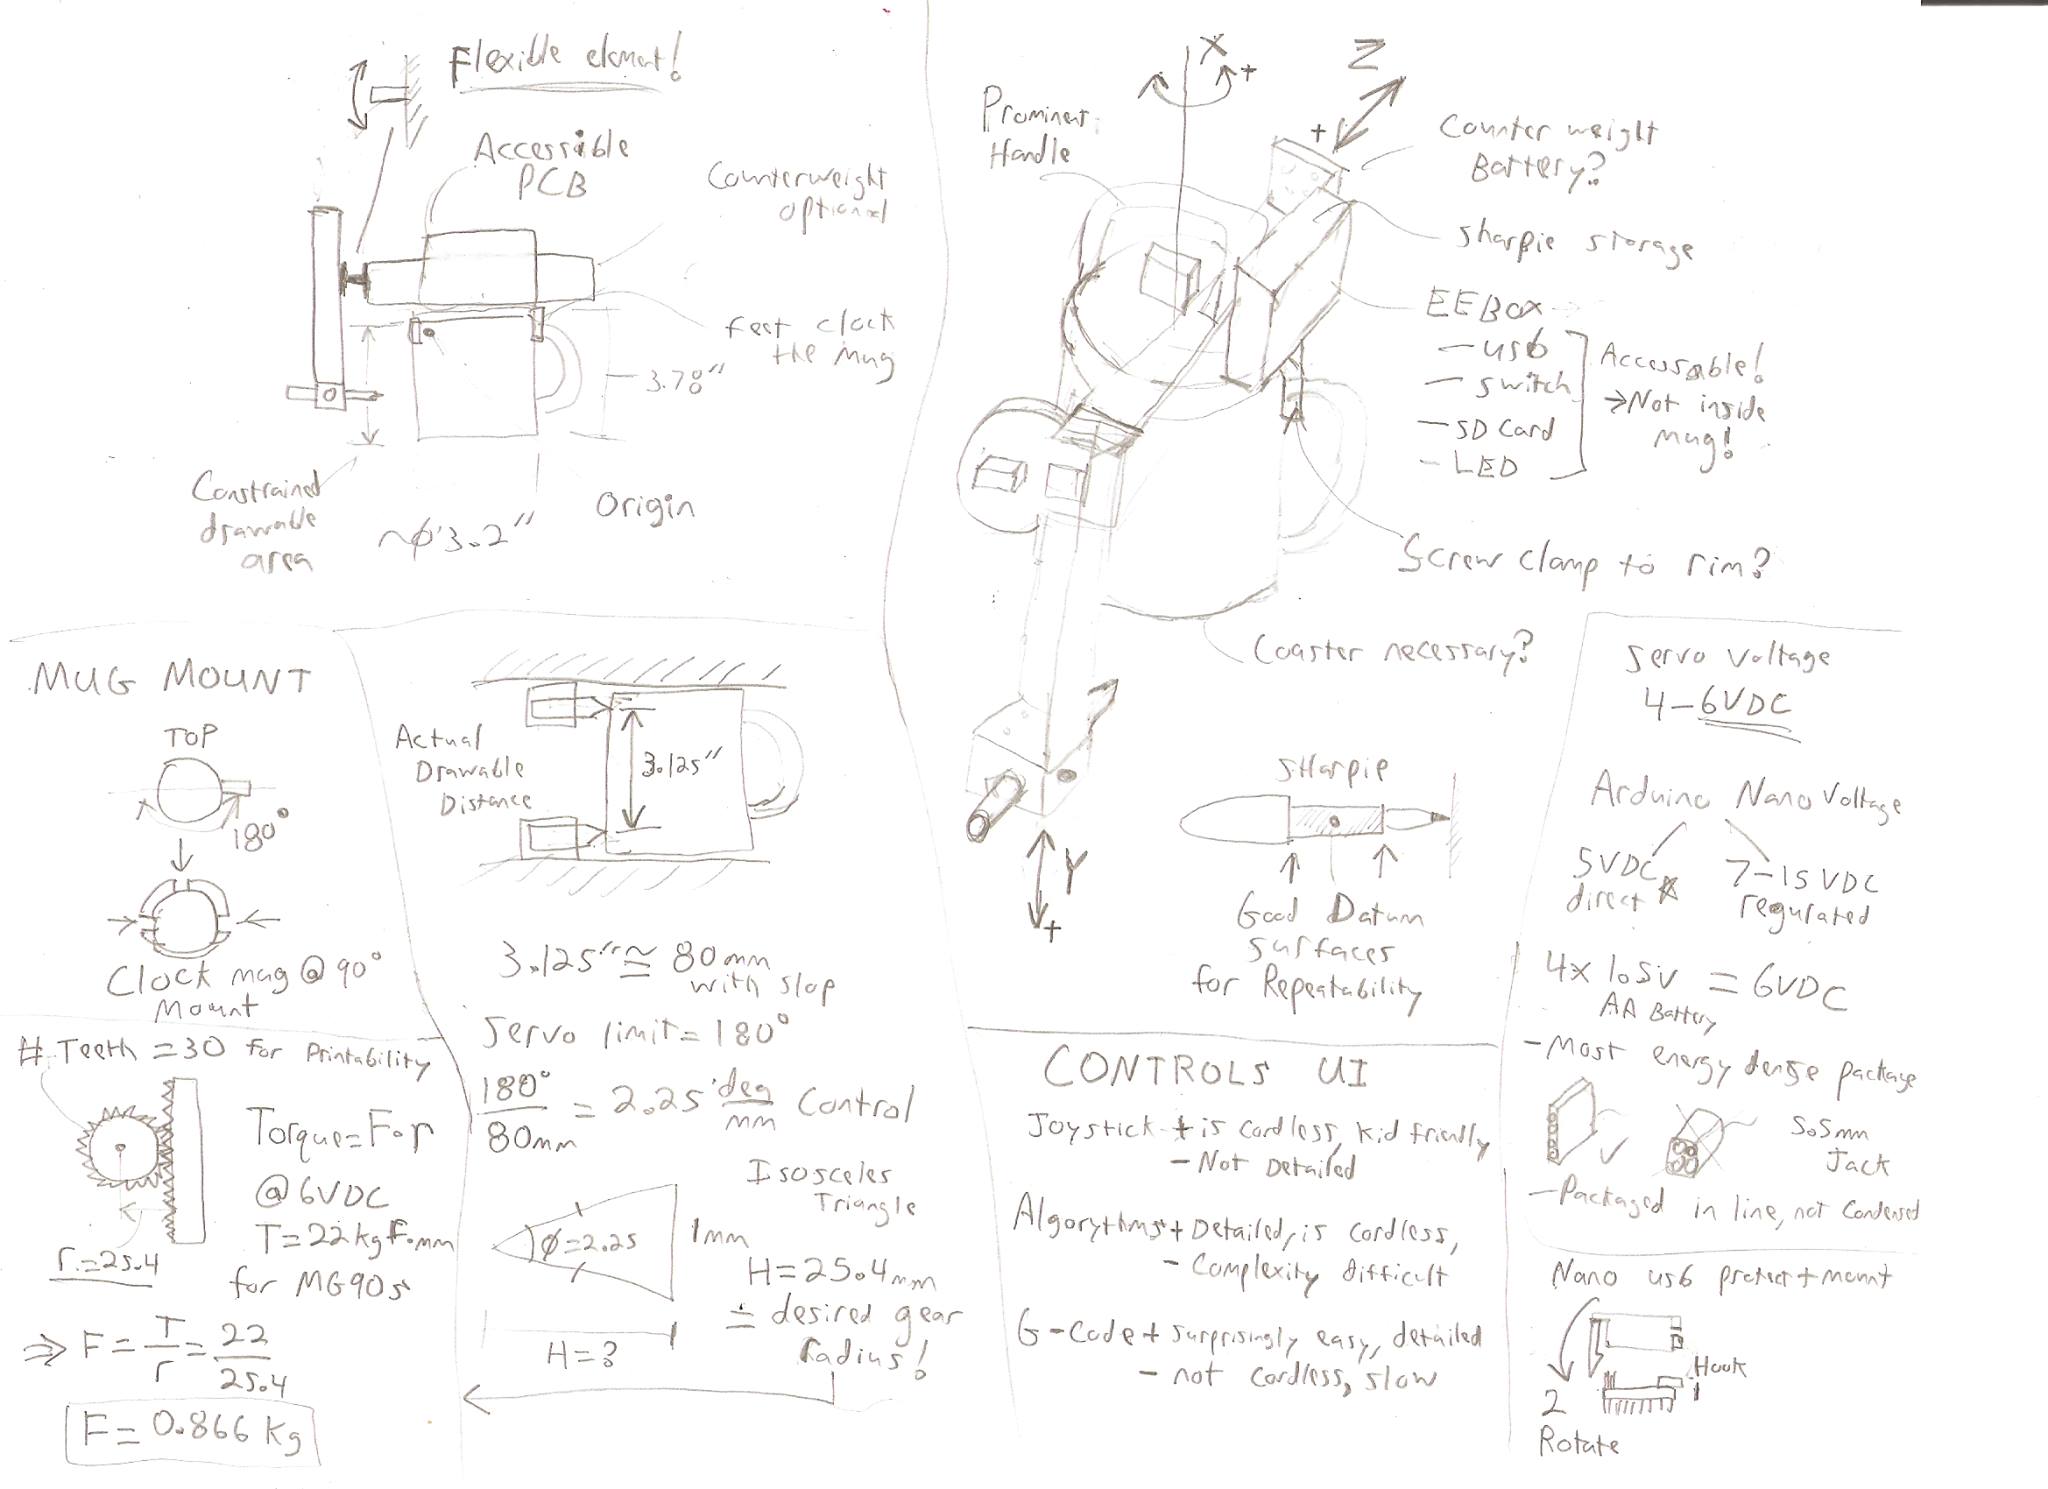 Flexible element!
Accessible
PCB
Counterweight
optional
Feet clock
the mug
3.78"
Constrained
drawable
area
~Ø3.2"
Origin
X
+
Z
+
Prominent
Handle
Counter weight
Battery?
Sharpie storage
EEBOX
- USB
- Switch
- SD Card
- LED
Accessable!
→Not inside
mug!
Screw clamp to rim?
Coaster necessary?
Y
+
Sharpie
Good Datum
Surfaces
for Repeatability
MUG MOUNT
TOP
180°
Clock mug @ 90°
Mount
Actual
Drawable
Distance
3.125"
3.125" ≅ 80mm
with slop
Servo limit = 180°
180°/80mm = 2.25 deg/mm Control
Isosceles
Triangle
Ø=2.25
1mm
H=25.4mm
= desired gear
radius!
H=?
# Teeth = 30 for printability
Torque = F.r
@ 6VDC
T=22kgF.mm
for MG90s
r=25.4
⇒ F = T/r = 22/25.4
F= 0.866 Kg
CONTROLS UI
Joystick + is cordless, kid friendly
- Not Detailed
Algorythms + Detailed, is cordless,
- Complexity difficult
G-Code + surprisingly easy, detailed
- not cordless, slow
Servo Voltage
4-6VDC
Arduino Nano Voltage
5VDC
direct
7-15 VDC
regurated
4x 1.5V = 6VDC
AA Battery
- Most energy dense package
5.5mm
Jack
- Packaged in line, not Condensed
Nano usb protect + mount
Hook
1
2
Rotate